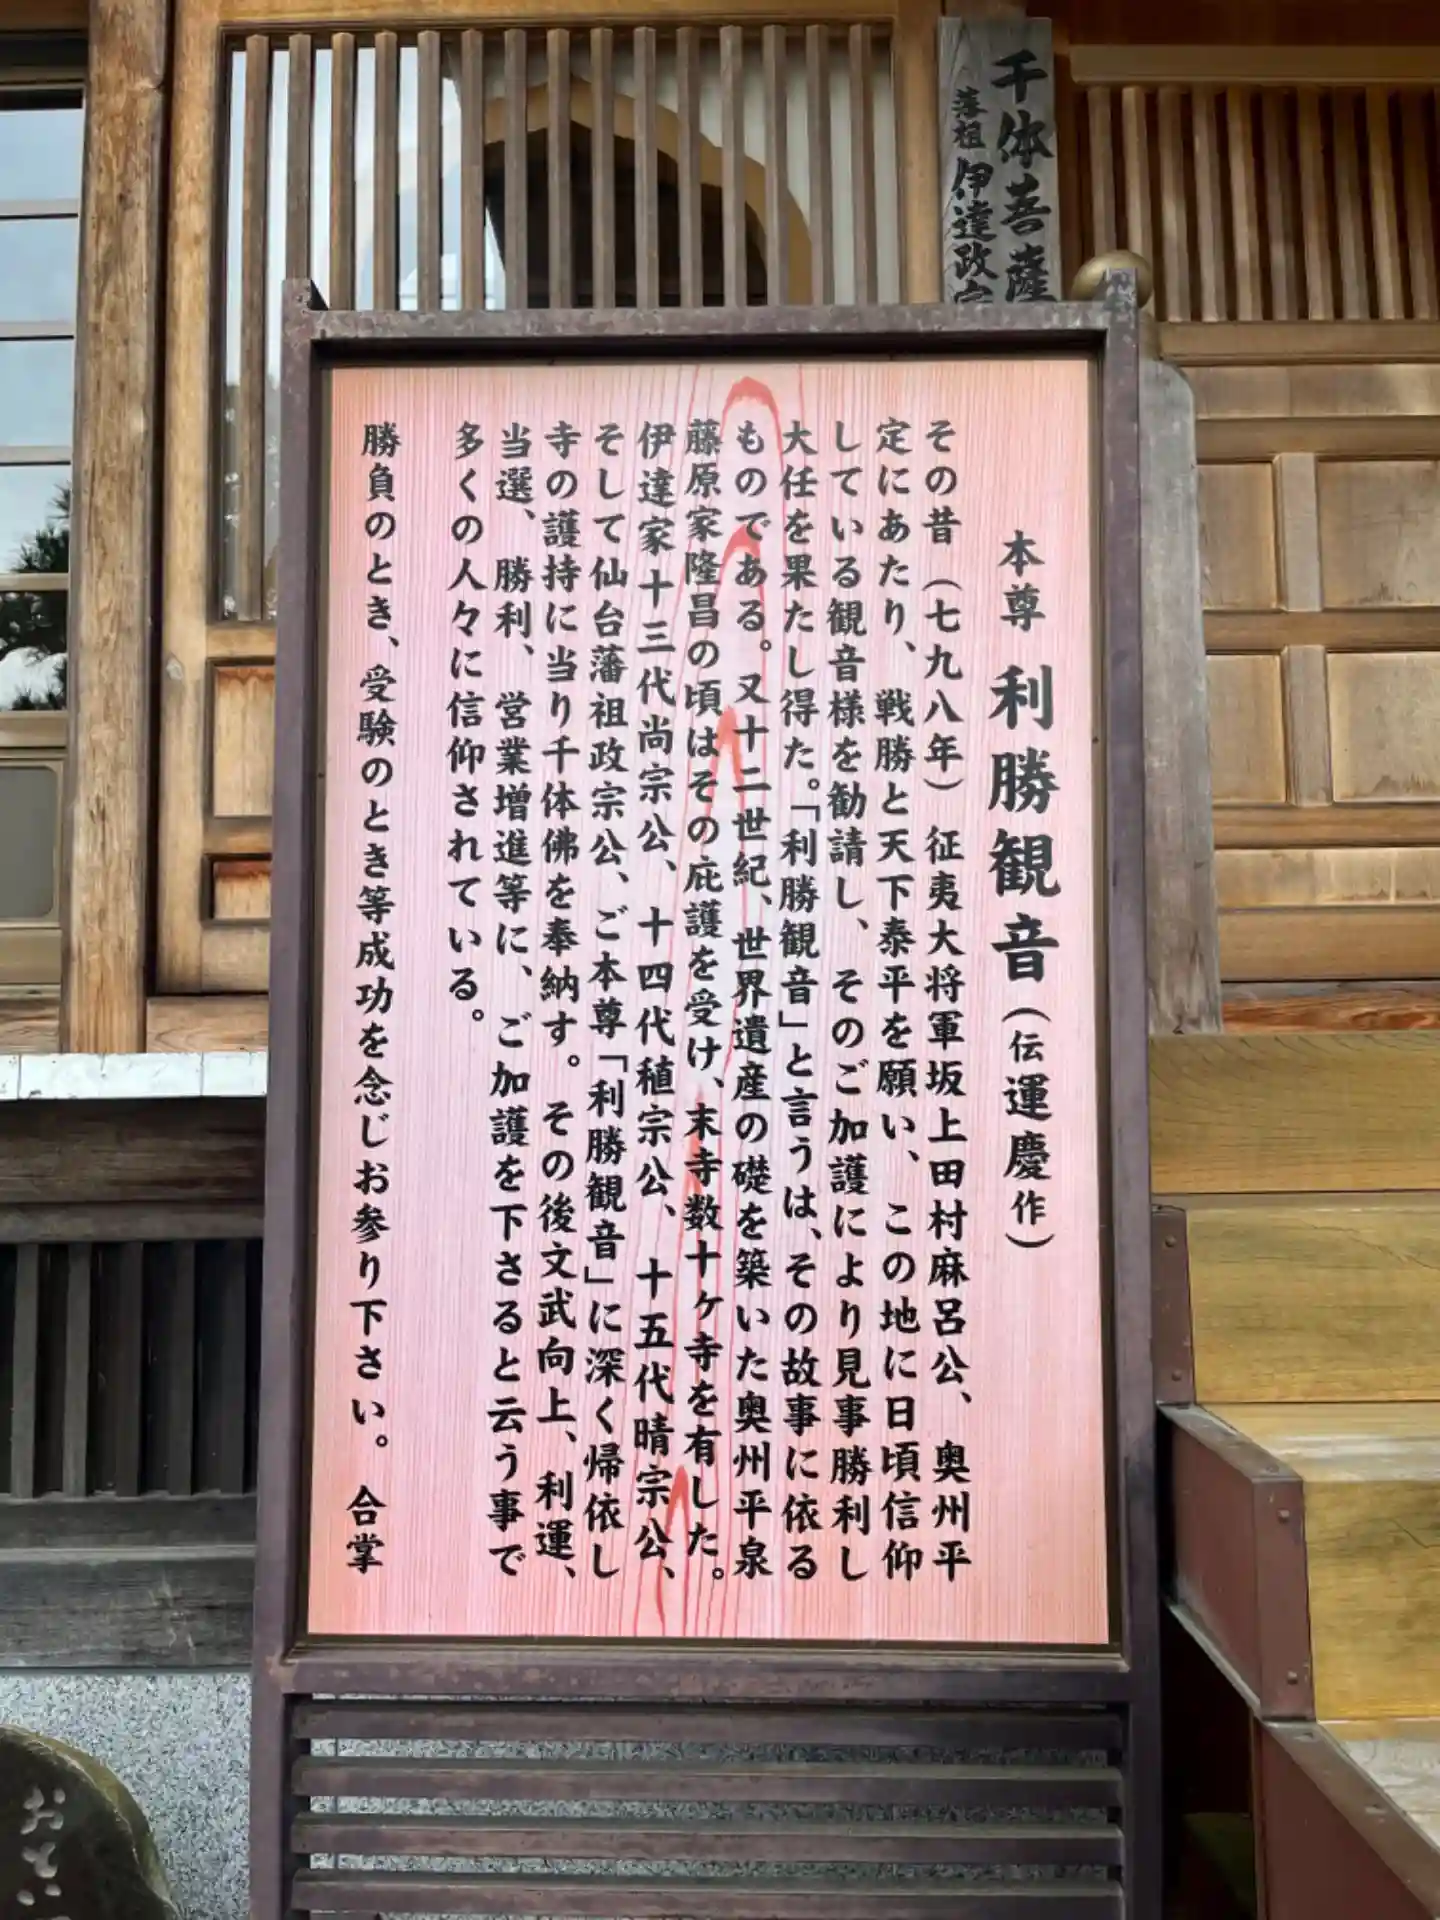 本尊 利勝観音（伝運慶作）
その昔（七九八年）征夷大将軍坂上田村麻呂公、奥州平
定にあたり、戦勝と天下泰平を願い、この地に日頃信仰
している観音様を勧請し、そのご加護により見事勝利し
大任を果たし得た。「利勝観音」と言うは、その故事に依る
ものである。又十二世紀、世界遺産の礎を築いた奥州平泉
藤原家隆昌の頃はその庇護を受け、末寺数十ヶ寺を有した。
伊達家十三代尚宗公、十四代稙宗公、十五代晴宗公、
そして仙台藩祖政宗公、ご本尊「利勝観音」に深く帰依し
寺の護持に当り千体佛を奉納す。その後文武向上、利運、
当選、勝利、営業増進等に、ご加護を下さると云う事で
多くの人々に信仰されている。
勝負のとき、受験のとき等成功を念じお参り下さい。合掌
千体菩薩
藩祖 伊達政宗
おとい